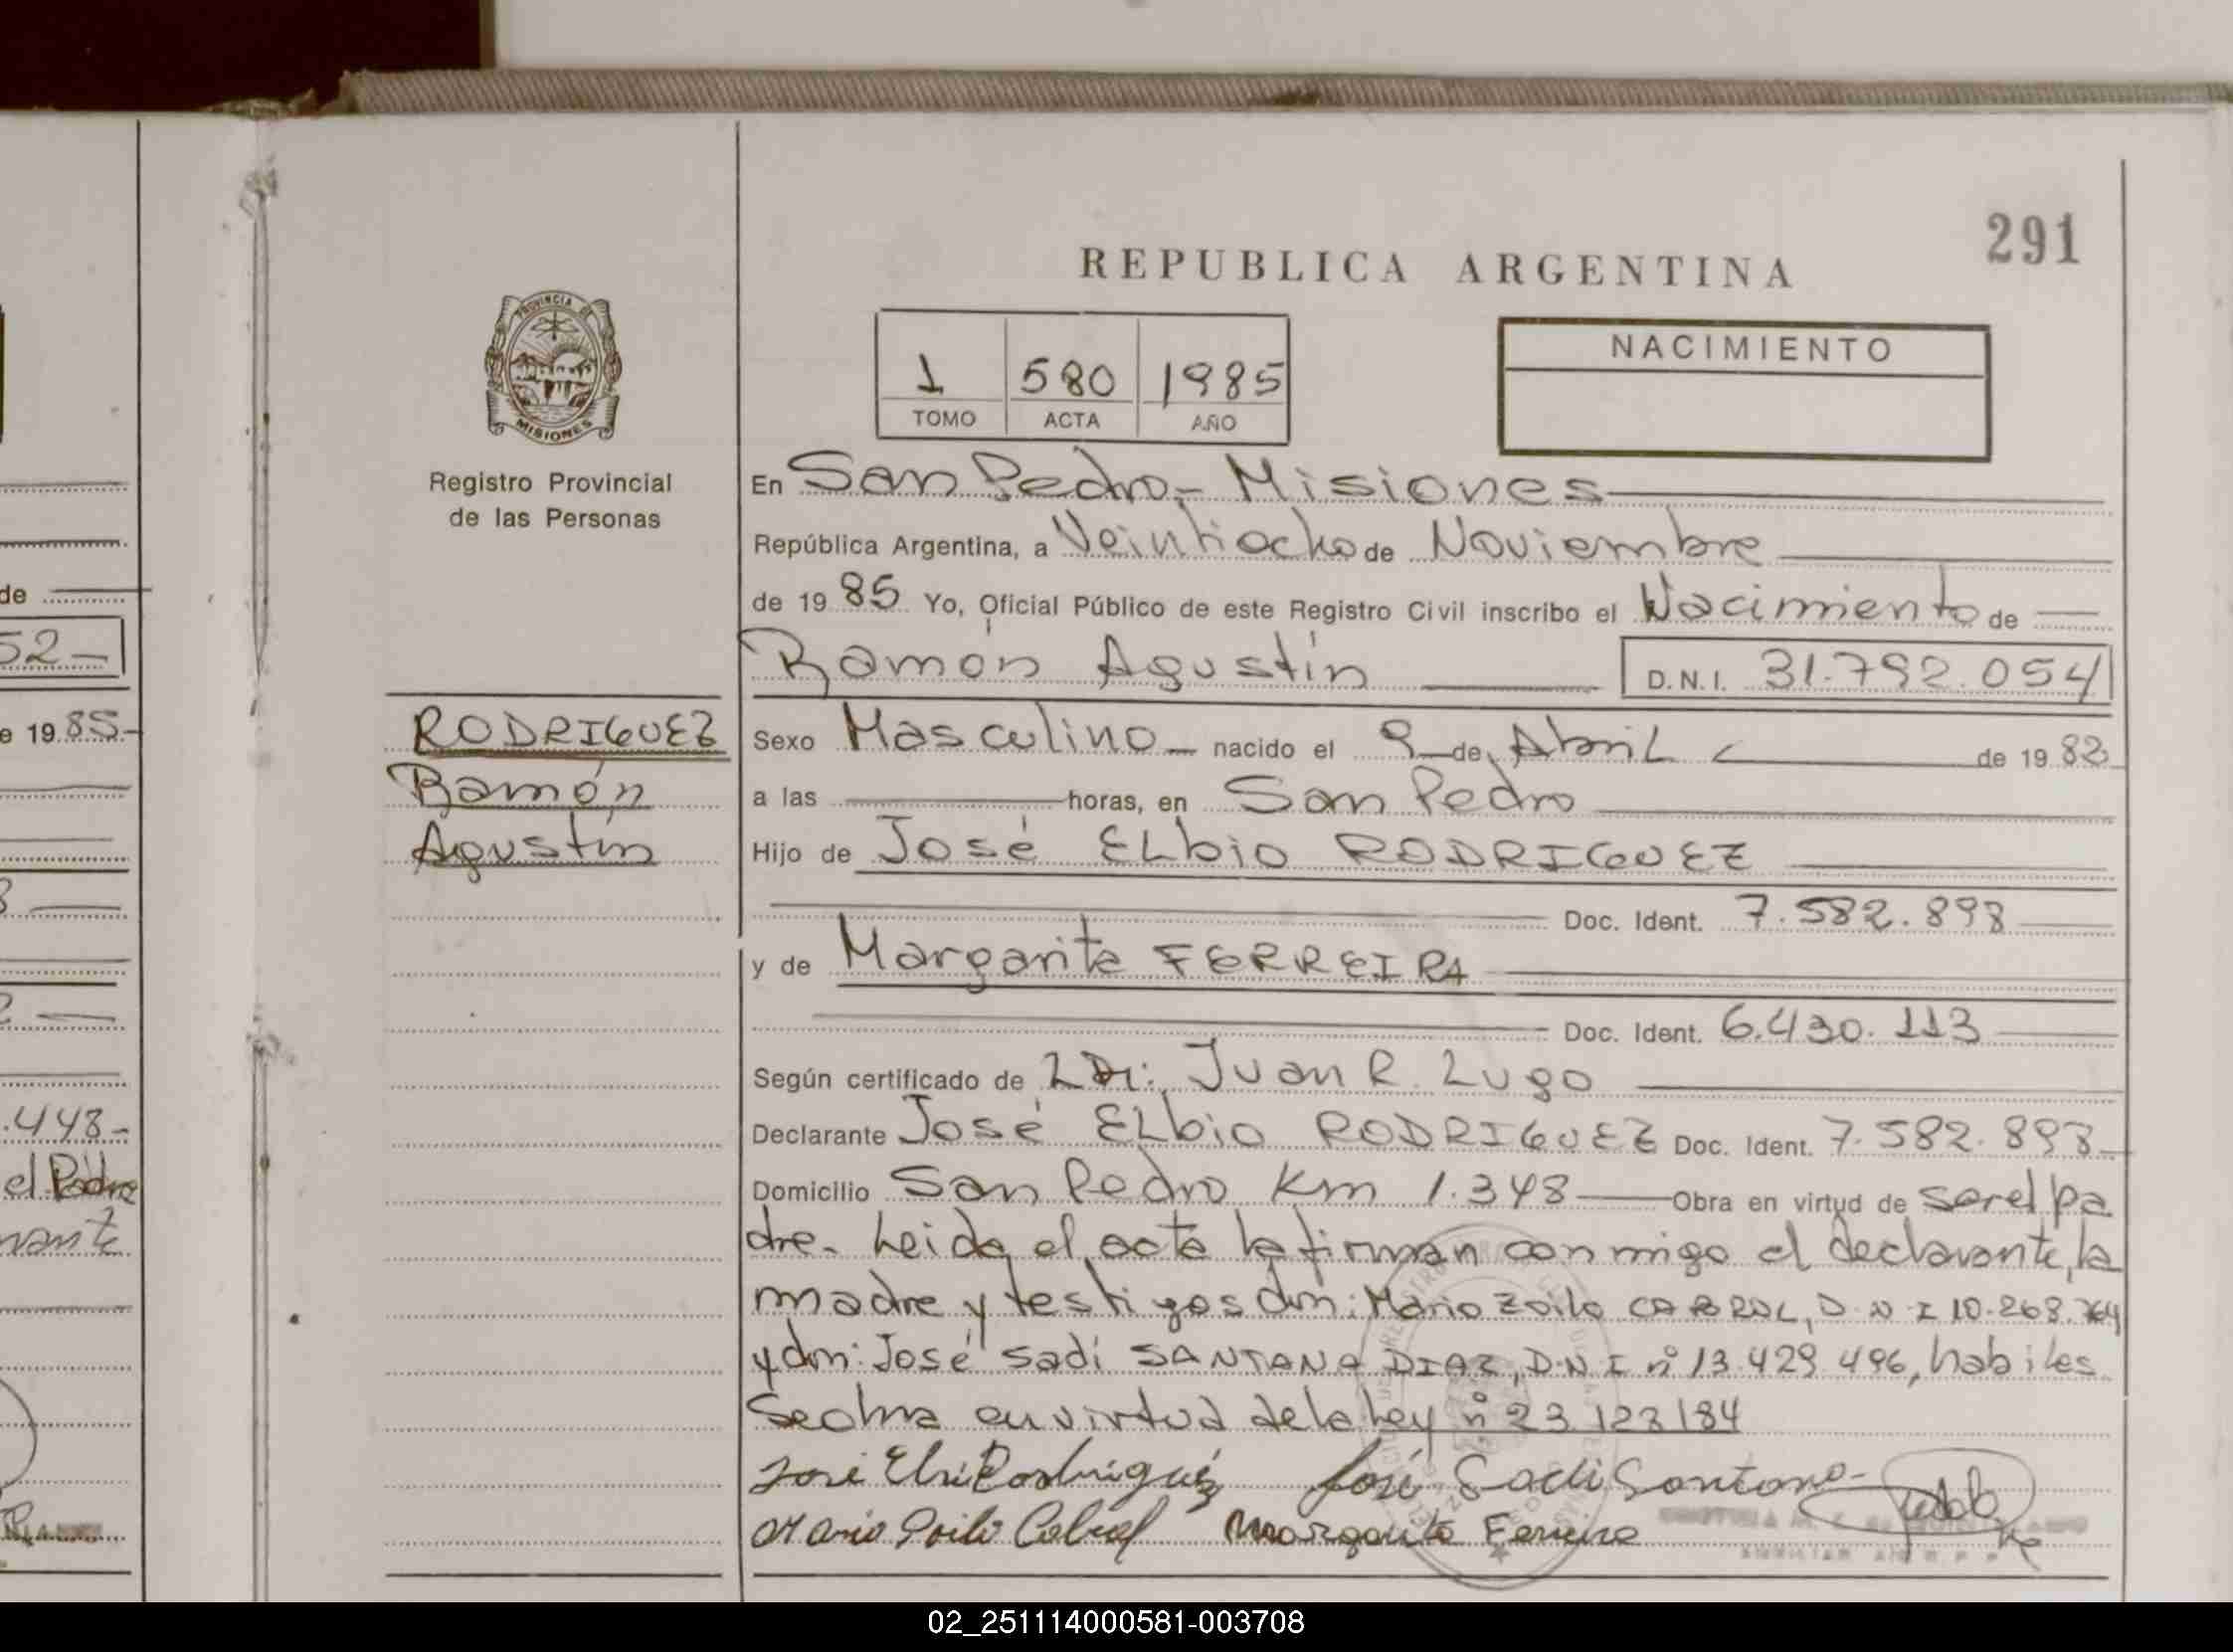 291
REPUBLICA ARGENTINA
PROVINCIA DE
MISIONES
Registro Provincial
de las Personas
1 580 1985
TOMO ACTA AÑO
NACIMIENTO
En San Pedro - Misiones
República Argentina, a Veintiocho de Noviembre
de 19 85 Yo, Oficial Público de este Registro Civil inscribo el Nacimiento de
Ramón Agustín D.N.I. 31.792.054
RODRIGUEZ
Ramón
Agustín
Sexo Masculino nacido el 9 de Abril de 19 82
a las horas, en San Pedro
Hijo de José ELbio RODRIGUEZ
Doc. Ident. 7.582.898
y de Margarita FERREIRA
Doc. Ident. 6.430.113
Según certificado de Dr. Juan R. Lugo
Declarante José ELbio RODRIGUEZ Doc. Ident. 7.582.898
Domicilio San Pedro Km 1.348 Obra en virtud de ser el pa
dre. Leida el acta la firman conmigo el declarante, la
madre y testigos don: Mario Zoilo CABRAL, D.N.I 10.268.764
y don: José Sadi SANTANA DIAZ, D.N.I nº 13.429.496, habiles
Se obra en virtud de la Ley nº 23.123/84
José Elvio Rodriguéz José Sadi Santana
Mario Soilo Cabral Margarita Ferreira
de
52
e 19 85
.448-
el Padre
02_251114000581-003708